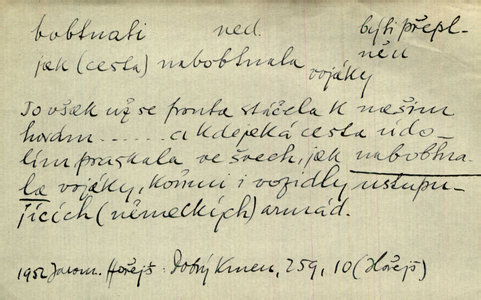 bobtnati ned. býti přepl-
něn
jak (cesta) nabobtnala vojáky
To však už se fronta stáčela k našim
horám ..... a kdejaká cesta údo-
lím praskala ve švech, jak nabobtna-
la vojáky, koňmi i vozidly ustupu-
jících (německých) armád.
1952 Jarom. Hořejš: Dobrý Kmen, 259, 10 (Hořejš)